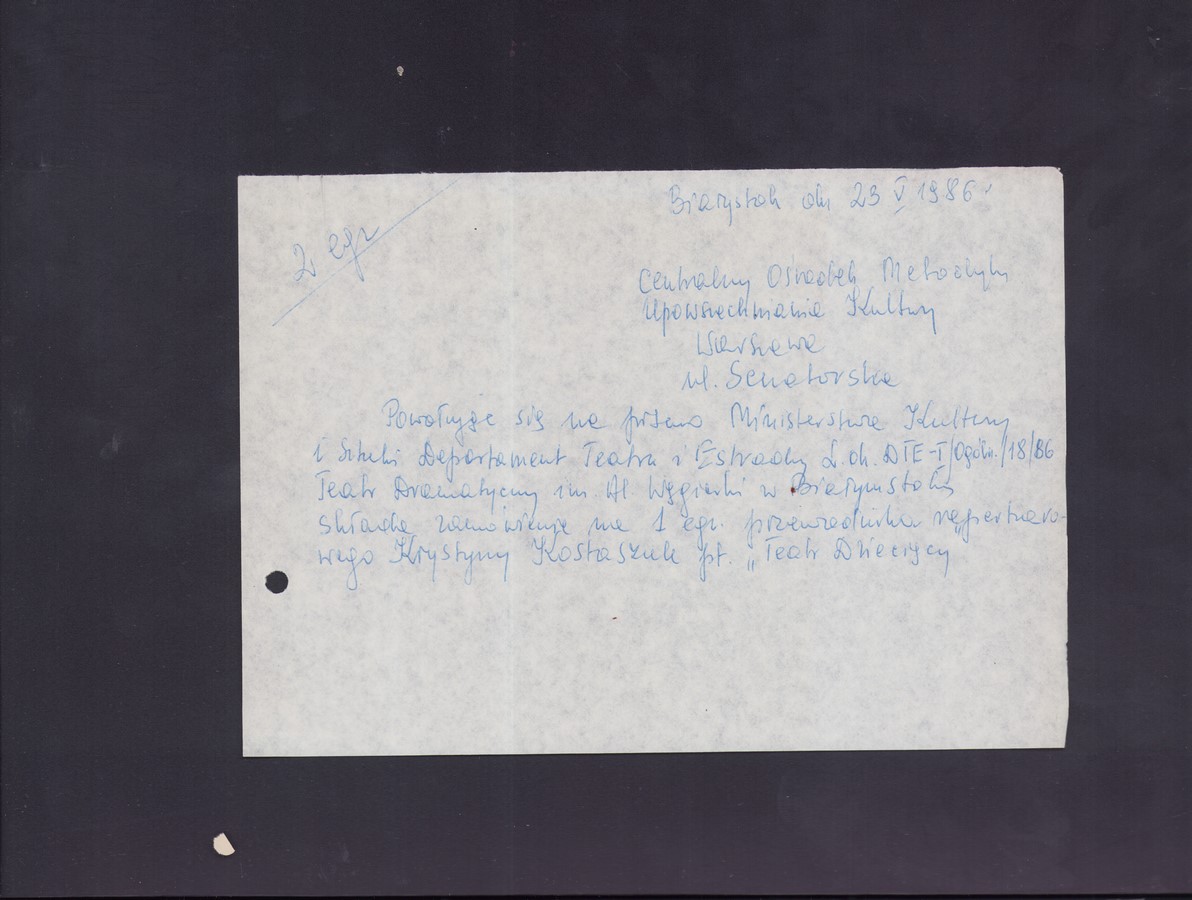 Białystok dn 23 V 1986.
2 egz
Centralny Ośrodek Metodyki
Upowszechniania Kultury
Warszawa
ul. Senatorska
Powołując się na pismo Ministerstwa Kultury
i Sztuki Departament Teatru i Estrady L.dz. DTE-I/Ogóln./18/86
Teatr Dramatyczny im. Al. Węgierki w Białymstoku
składa zamówienie na 1 egz. przewodnika repertuaro-
wego Krystyny Kostaszuk pt. „Teatr Dziecięcy”